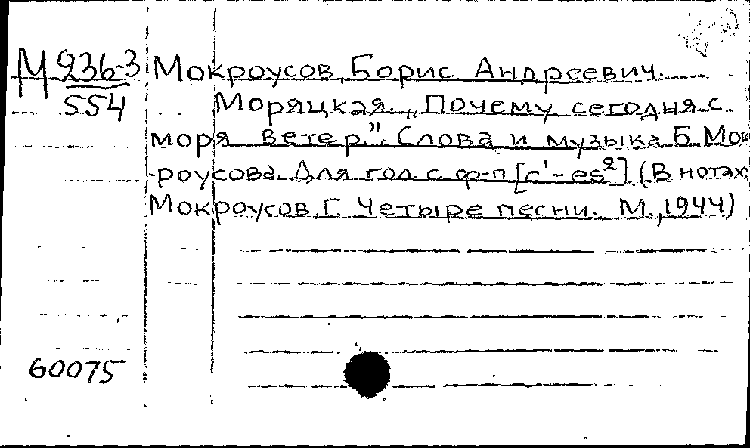 М 236-3
554
Мокроусов, Борис Андреевич.
Моряцкая. „Почему сегодня с
моря ветер". Слова и музыка Б. Мок
роусова. Для гол. с ф-п [c¹-es²] (В нотах:
Мокроусов, Г. Четыре песни. М., 1944)
60075